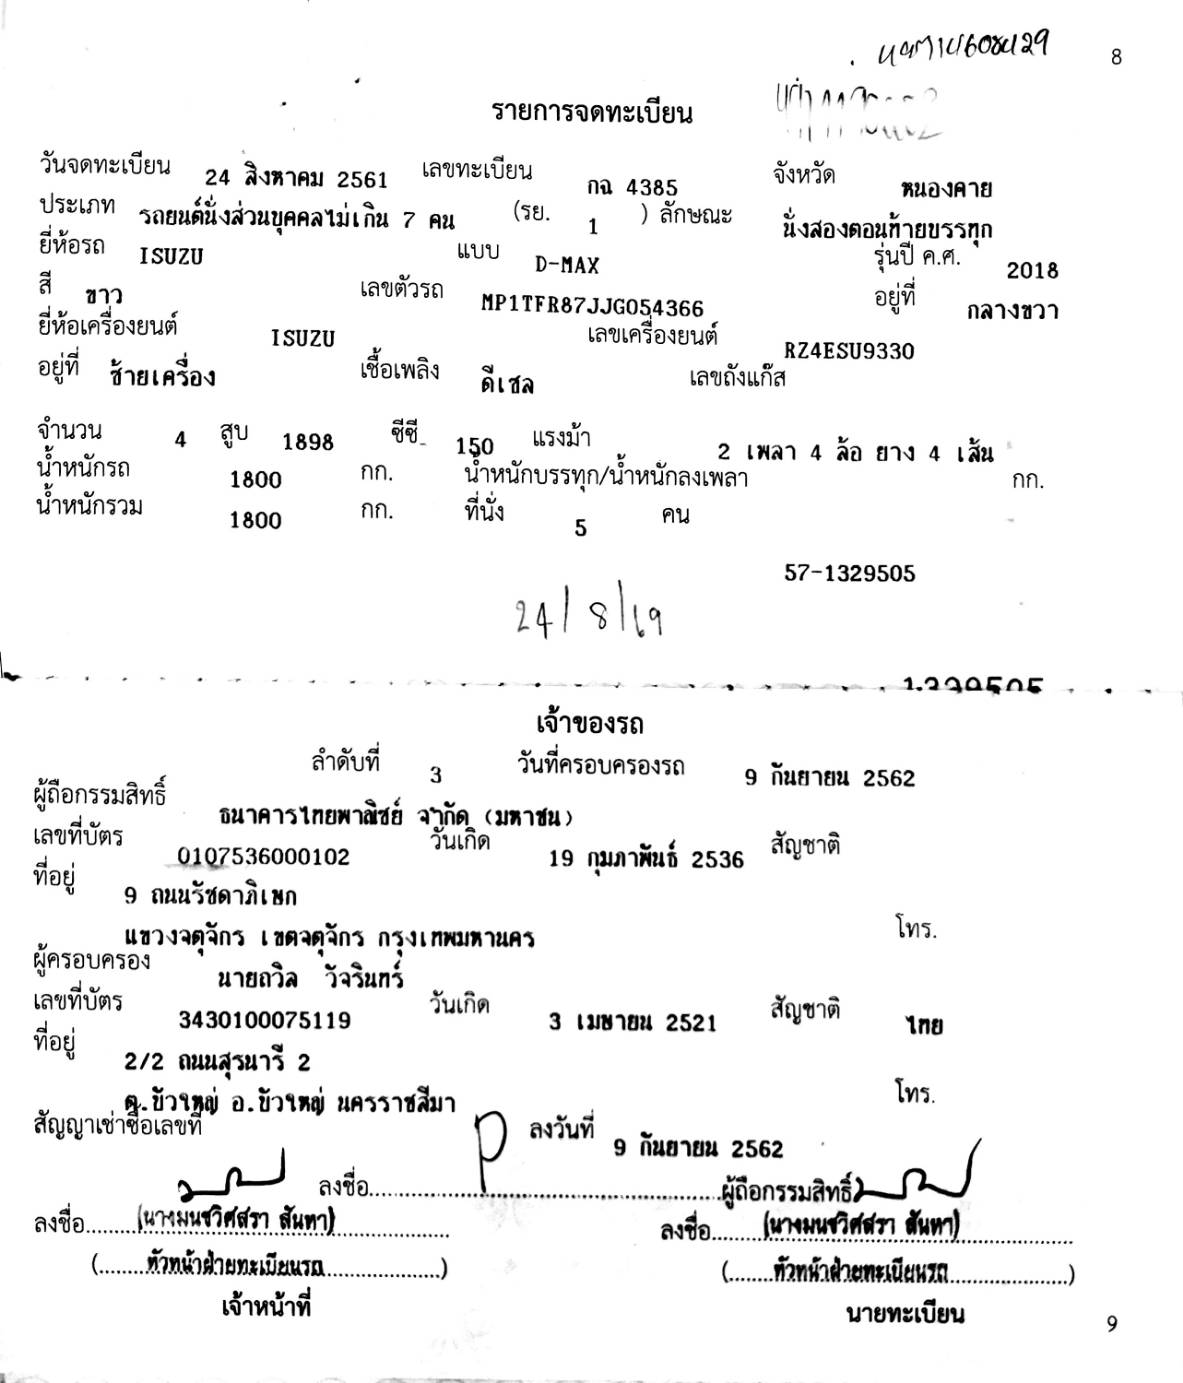 8
รายการจดทะเบียน
วันจดทะเบียน 24 สิงหาคม 2561 เลขทะเบียน กฉ 4385 จังหวัด หนองคาย
ประเภท รถยนต์นั่งส่วนบุคคลไม่เกิน 7 คน (รย. 1 ) ลักษณะ นั่งสองตอนท้ายบรรทุก
ยี่ห้อรถ ISUZU แบบ D-MAX รุ่นปี ค.ศ. 2018
สี ขาว เลขตัวรถ MP1TFR87JJG054366 อยู่ที่ กลางขวา
ยี่ห้อเครื่องยนต์ ISUZU เลขเครื่องยนต์ RZ4ESU9330
อยู่ที่ ซ้ายเครื่อง เชื้อเพลิง ดีเซล เลขถังแก๊ส
จำนวน 4 สูบ 1898 ซีซี 150 แรงม้า 2 เพลา 4 ล้อ ยาง 4 เส้น
น้ำหนักรถ 1800 กก. น้ำหนักบรรทุก/น้ำหนักลงเพลา กก.
น้ำหนักรวม 1800 กก. ที่นั่ง 5 คน
57-1329505
24/8/69
1329505
เจ้าของรถ
ลำดับที่ 3 วันที่ครอบครองรถ 9 กันยายน 2562
ผู้ถือกรรมสิทธิ์ ธนาคารไทยพาณิชย์ จำกัด (มหาชน)
เลขที่บัตร 0107536000102 วันเกิด 19 กุมภาพันธ์ 2536 สัญชาติ
ที่อยู่ 9 ถนนรัชดาภิเษก
แขวงจตุจักร เขตจตุจักร กรุงเทพมหานคร โทร.
ผู้ครอบครอง นายถวิล วัจรินทร์
เลขที่บัตร 3430100075119 วันเกิด 3 เมษายน 2521 สัญชาติ ไทย
ที่อยู่ 2/2 ถนนสุรนารี 2
ต.บัวใหญ่ อ.บัวใหญ่ นครราชสีมา โทร.
สัญญาเช่าซื้อเลขที่ ลงวันที่ 9 กันยายน 2562
ลงชื่อ ผู้ถือกรรมสิทธิ์
ลงชื่อ (นางมนชวิศสรา สันทา) ลงชื่อ (นางมนชวิศสรา สันทา)
(หัวหน้าฝ่ายทะเบียนรถ) (หัวหน้าฝ่ายทะเบียนรถ)
เจ้าหน้าที่ นายทะเบียน
9